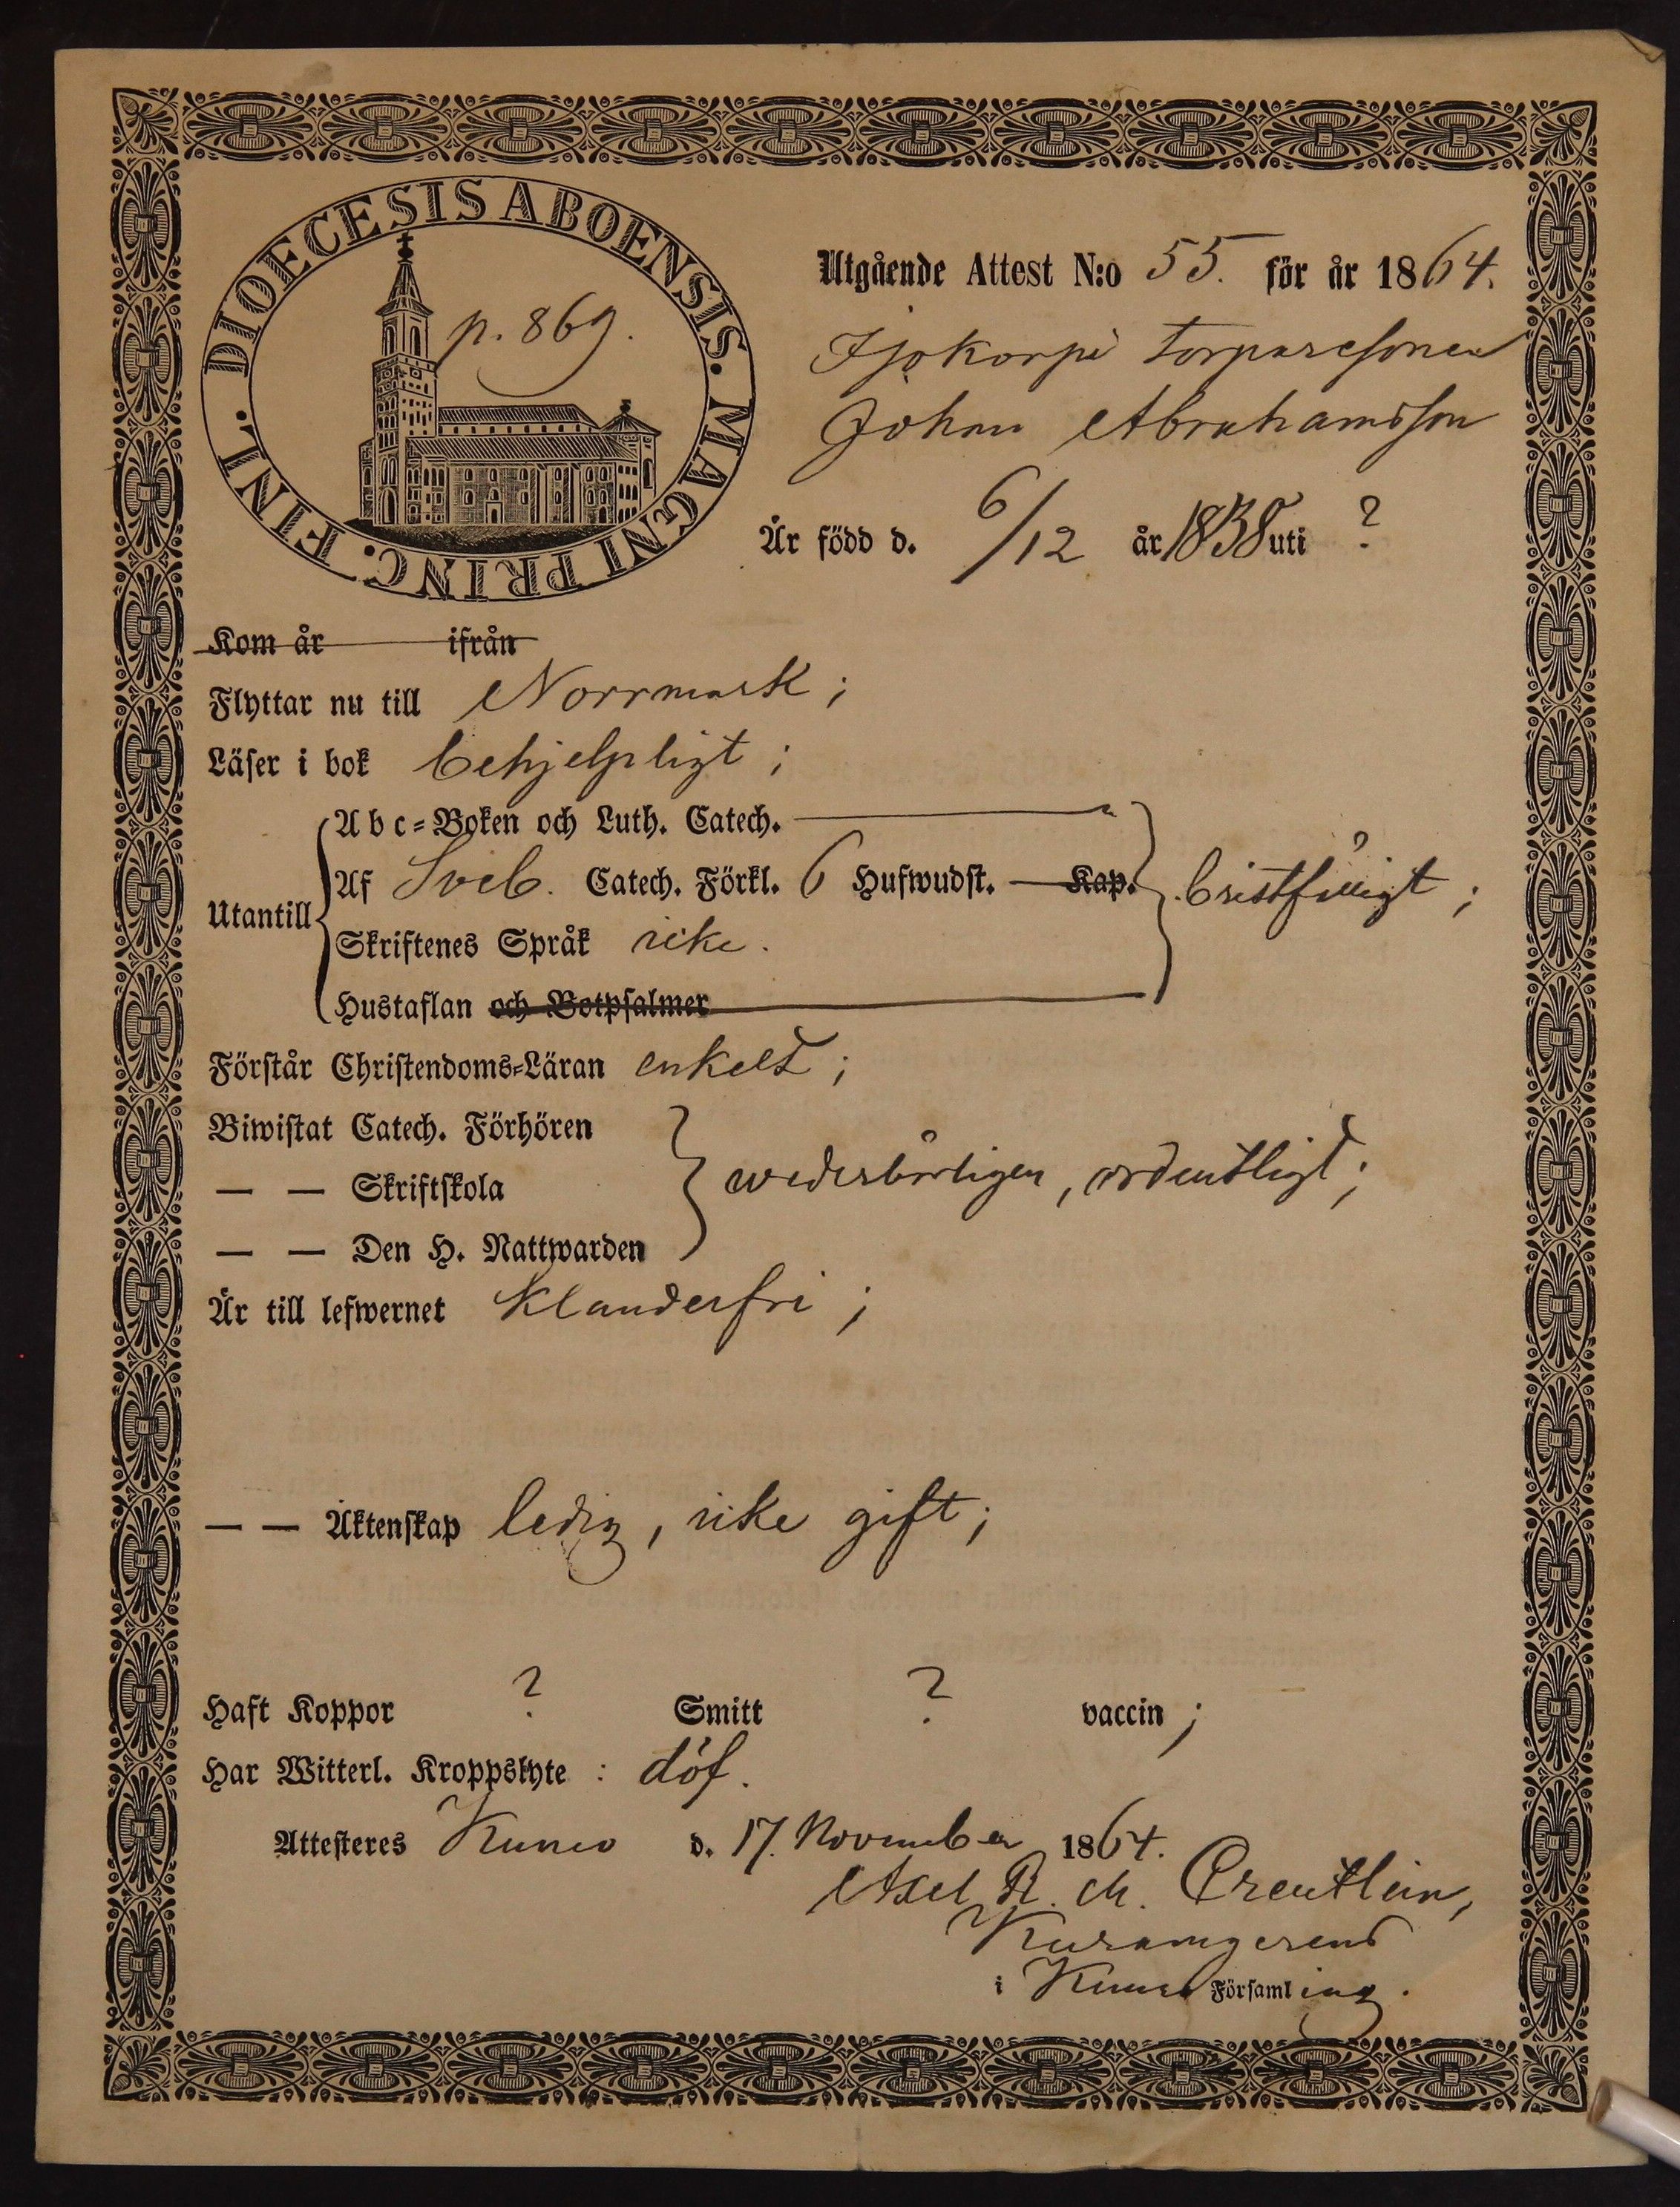 DIOECESIS ABOENSIS. MAGNI PRINC. FINL.
p. 869.
Utgående Attest N:o 55. för år 1864.
torparesonen
Johan Abrahamsson
Är född d. 6/12 år 1838 uti ?
Kom år ifrån
Flyttar nu till Norrmark;
Läser i bok behjelpligt;
Utantill
Abc-Boken och Luth. Catech.
Af Sveb. Catech. Förkl. 6 Hufwudst. — Kap. bristfälligt;
Skriftenes Språk icke.
Hustaflan och Botpsalmer
Förstår Christendoms-Läran enkelt;
Biwistat Catech. Förhören
— — Skriftskola wederbörligen, ordentligt;
— — Den H. Nattwarden
Är till lefwernet klanderfri;
— — Äktenskap ledig, icke gift;
Haft Koppor ? Smitt ? vaccin;
Har Witterl. Kroppslyte: döf.
Attesteres Kumo d. 17. November 1864.
Axel R. M. Creutlein,
i Kumo Församling.